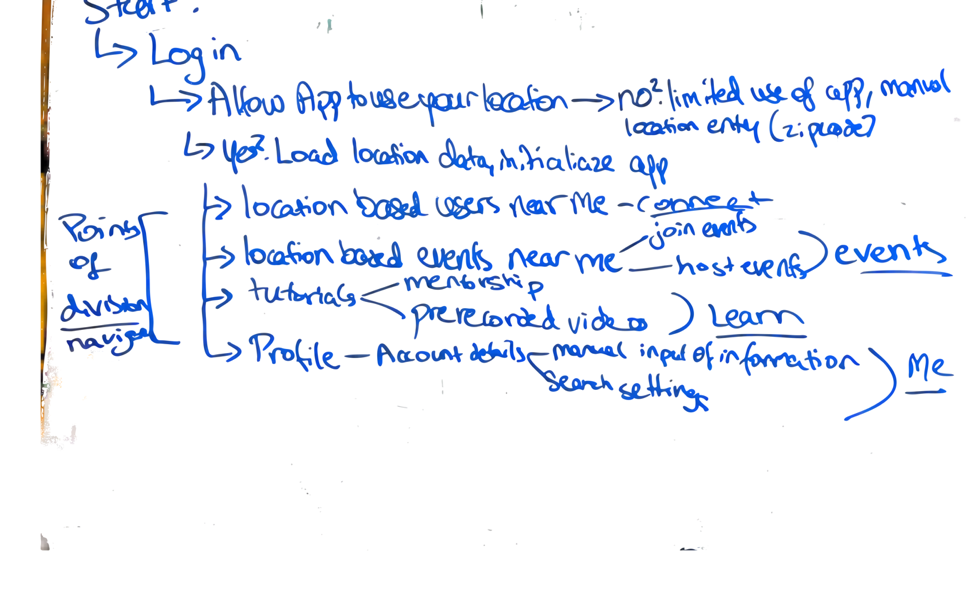 Start.
↳ Login
↳ Allow App to use your location → no?. limited use of app, manual
location entry (zipcode)
↳ Yes?. Load location data, initialiaze app
→ location based users near Me - connect
→ location based events near me
join events
host events
) events
→ tutorials
mentorship
prerecorded videos
) Learn
→ Profile - Account details
manual input of information
Search settings
) Me
Poins
of
division